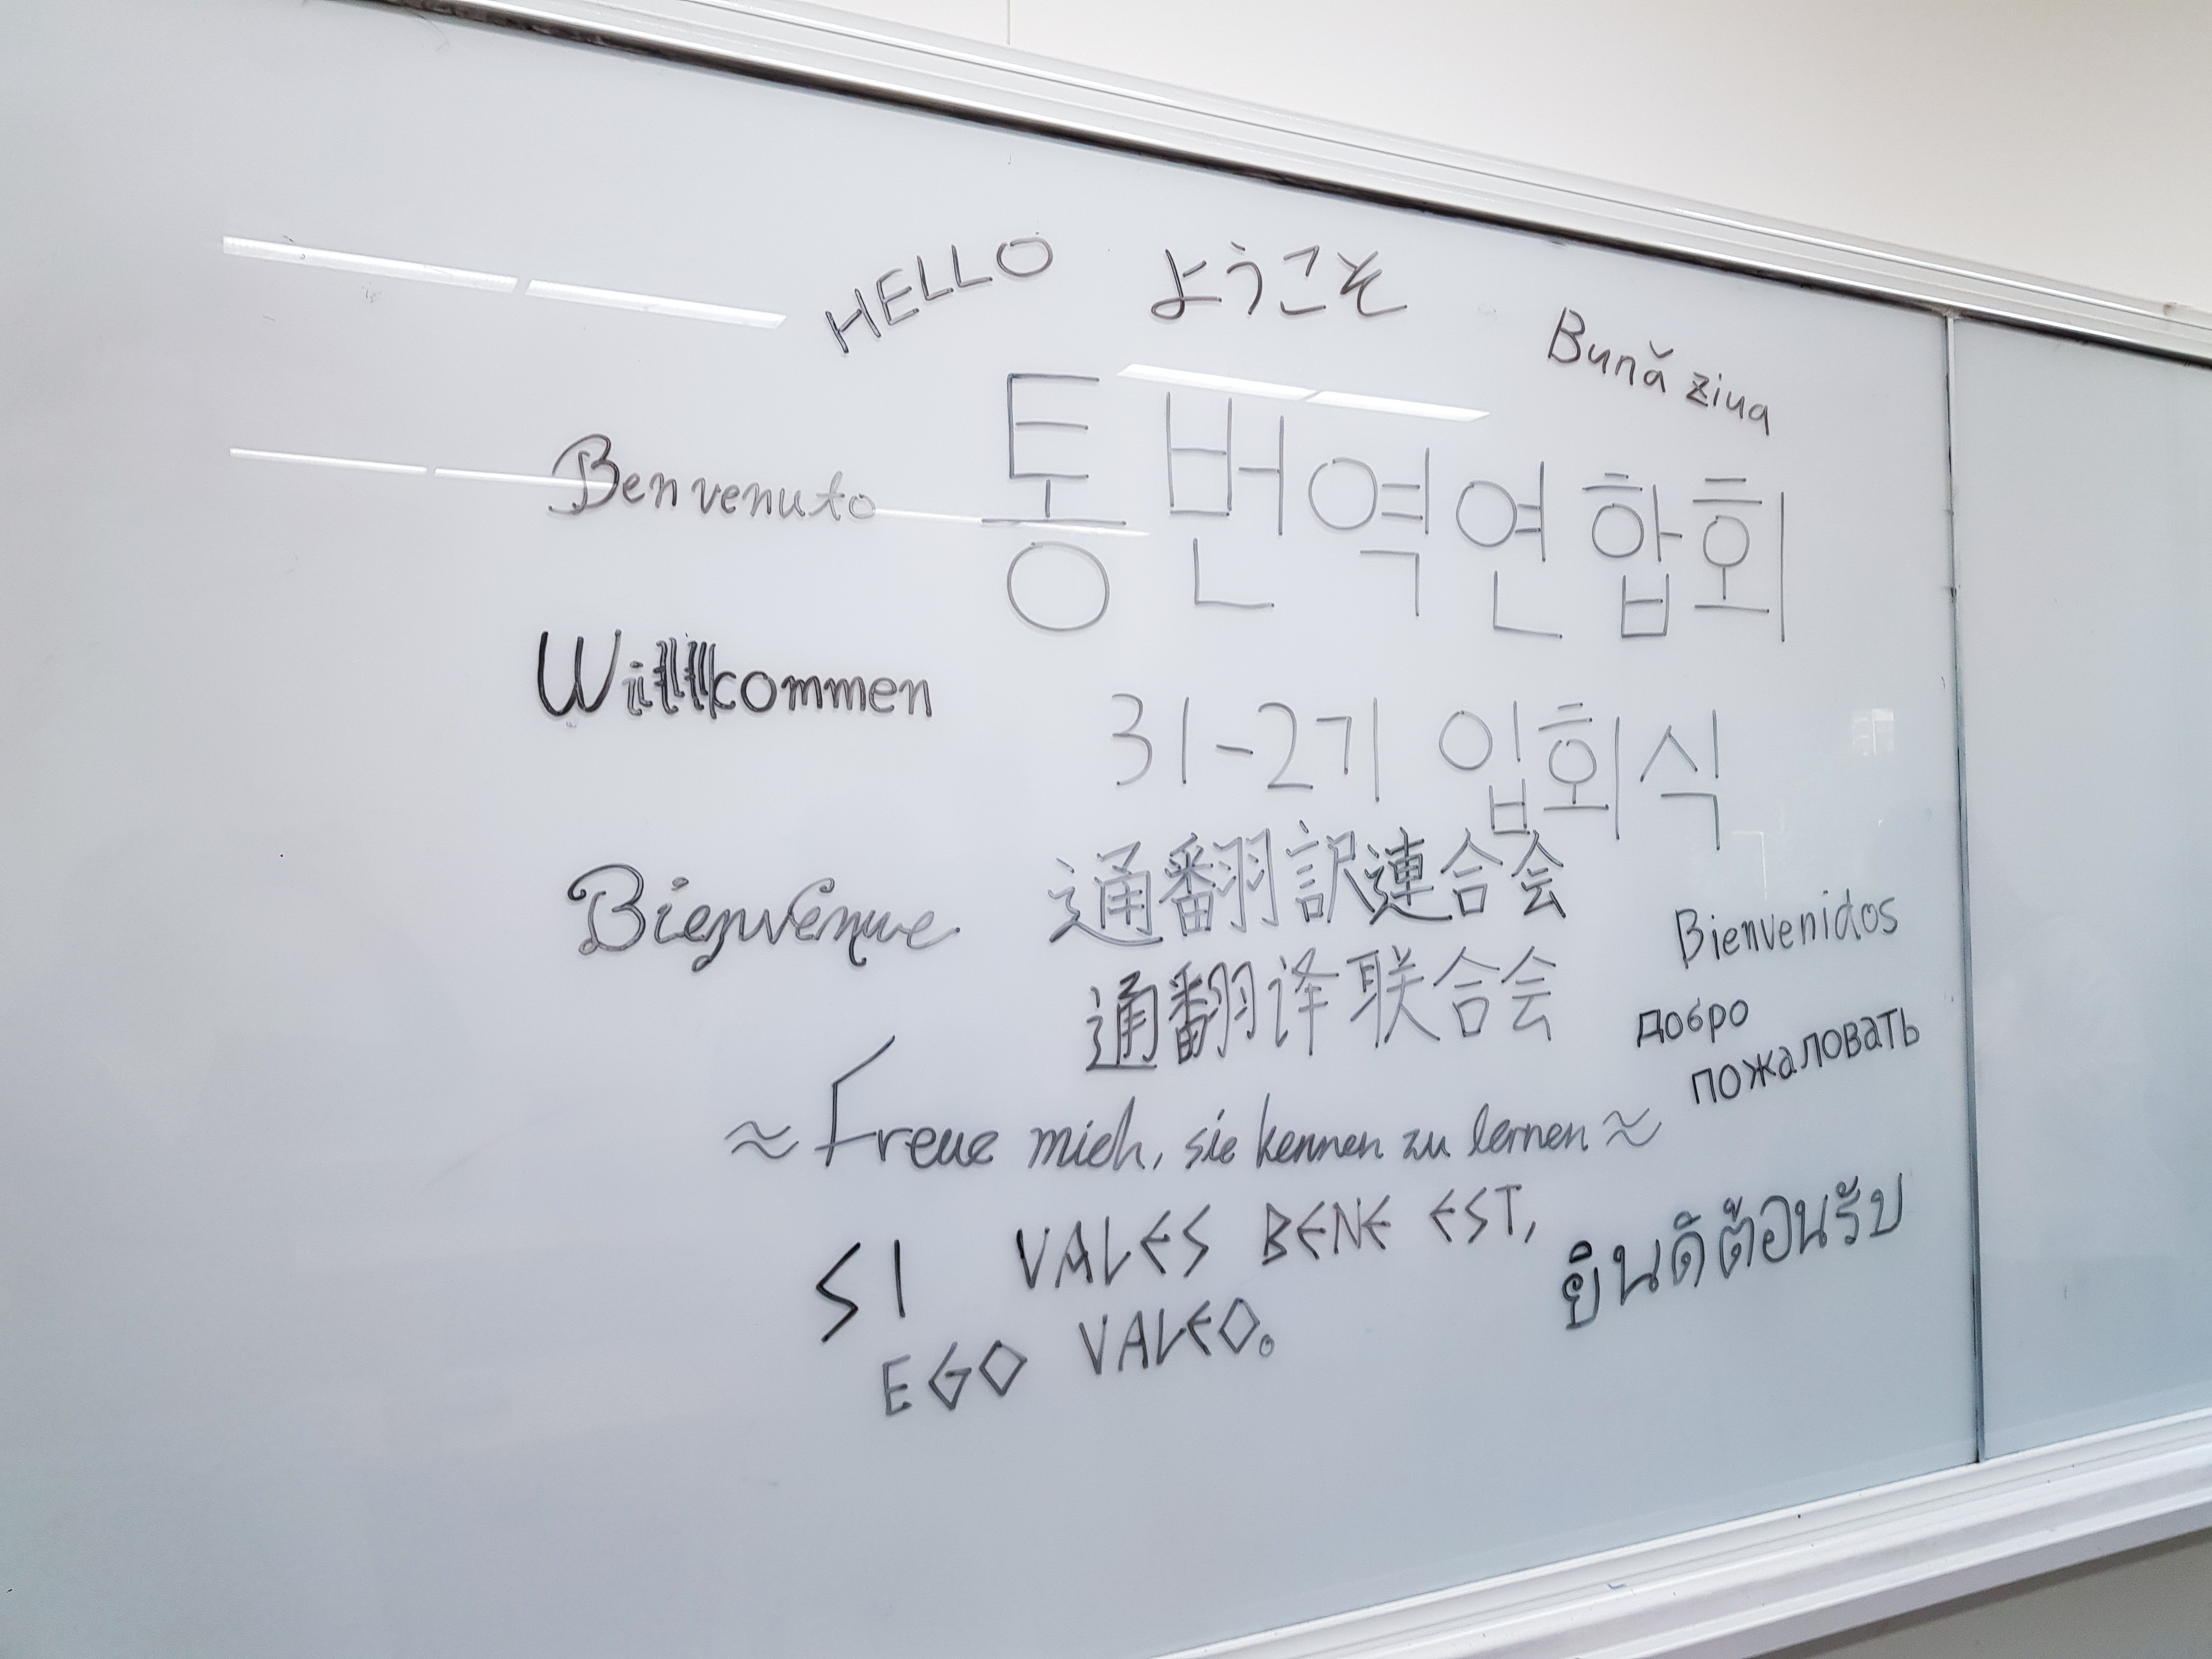 HELLO
ようこそ
Bună ziua
Benvenuto
통번역연합회
Willkommen
31-2기 입회식
Bienvenue
通翻訳連合会
Bienvenidos
通翻译联合会
добро
пожаловать
≈ Freue mich, sie kennen zu lernen ≈
SI VALES BENE EST,
EGO VALEO。
ยินดีต้อนรับ